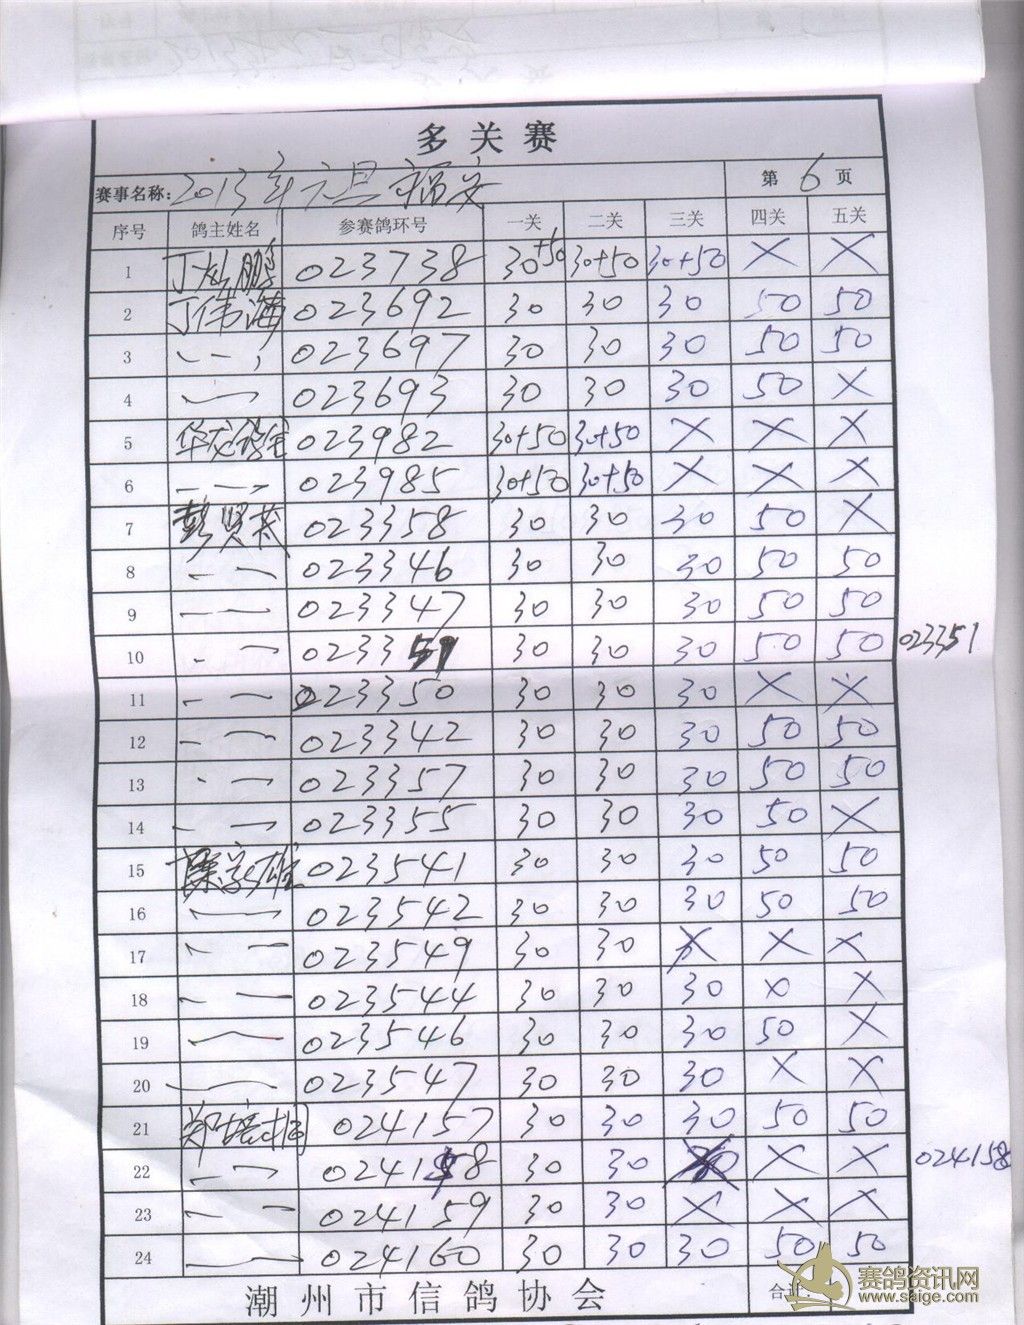 多关赛
赛事名称: 2013年元旦福安 第 6 页
序号 鸽主姓名 参赛鸽环号 一关 二关 三关 四关 五关
1 丁灿鹏 023738 30+50 30+50 30+50 × ×
2 丁伟海 023692 30 30 30 50 50
3 023697 30 30 30 50 50
4 023693 30 30 30 50 ×
5 023982 30+50 30+50 × × ×
6 023985 30+50 30+50 × × ×
7 彭贤 023358 30 30 30 50 ×
8 023346 30 30 30 50 50
9 023347 30 30 30 50 50
10 023351 30 30 30 50 50 023351
11 023350 30 30 30 × ×
12 023342 30 30 30 50 50
13 023357 30 30 30 50 50
14 023355 30 30 30 50 ×
15 陈 雄 023541 30 30 30 50 50
16 023542 30 30 30 50 50
17 023549 30 30 × × ×
18 023544 30 30 30 × ×
19 023546 30 30 30 50 ×
20 023547 30 30 30 × ×
21 郑培 024157 30 30 30 50 50
22 024158 30 30 × × 024158
23 024159 30 30 × × ×
24 024160 30 30 30 50 50
潮州市信鸽协会 合计:
赛鸽资讯网
www.saige.com